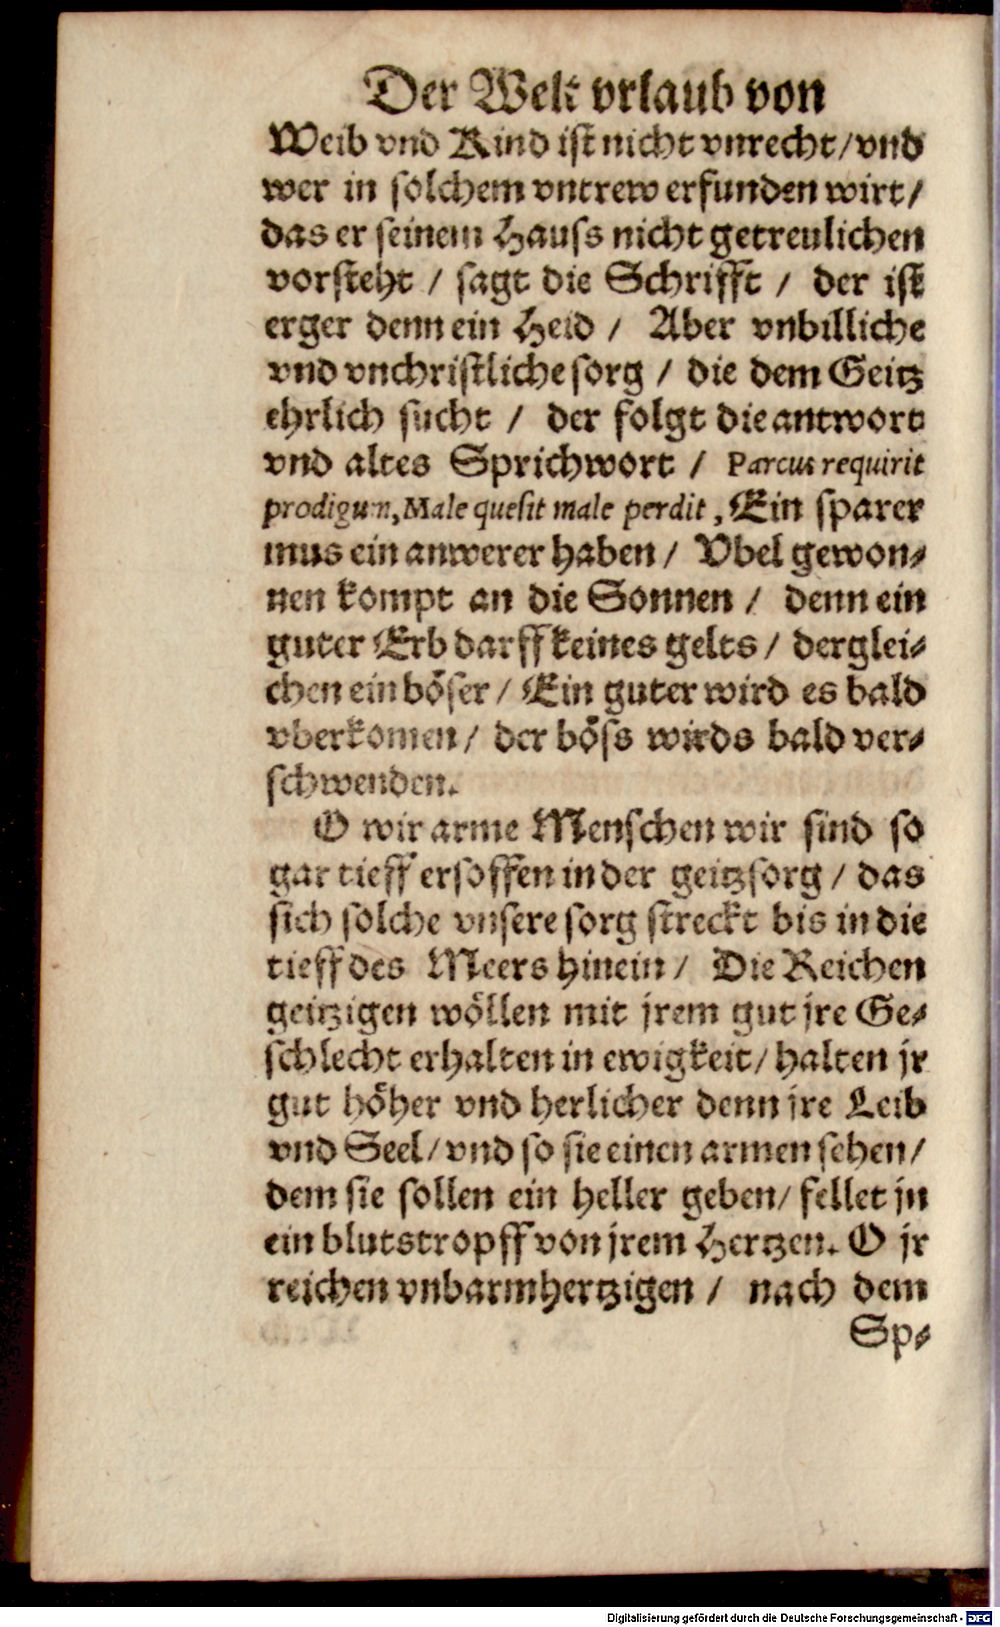 Der Welt vrlaub von
Weib vnd Kind ist nicht vnrecht/vnd
wer in solchem vntrew erfunden wirt/
das er seinem Hauss nicht getreulichen
vorsteht / sagt die Schrifft / der ist
erger denn ein Heid / Aber vnbilliche
vnd vnchristliche sorg / die dem Geitz
ehrlich sucht / der folgt die antwort
vnd altes Sprichwort / Parcus requirit
prodigum, Male quesit male perdit, Ein sparer
mus ein anwerer haben / Vbel gewon⸗
nen kompt an die Sonnen / denn ein
guter Erb darff keines gelts / derglei⸗
chen ein böser / Ein guter wird es bald
vberkomen / der böss wirds bald ver⸗
schwenden.
O wir arme Menschen wir sind so
gar tieff ersoffen in der geitzsorg / das
sich solche vnsere sorg streckt bis in die
tieff des Meers hinein / Die Reichen
geitzigen wöllen mit jrem gut jre Ge⸗
schlecht erhalten in ewigkeit / halten jr
gut höher vnd herlicher denn jre Leib
vnd Seel / vnd so sie einen armen sehen /
dem sie sollen ein heller geben / fellet jn
ein blutstropff von jrem Hertzen. O jr
reichen vnbarmhertzigen / nach dem
Sp⸗
Digitalisierung gefördert durch die Deutsche Forschungsgemeinschaft - DFG